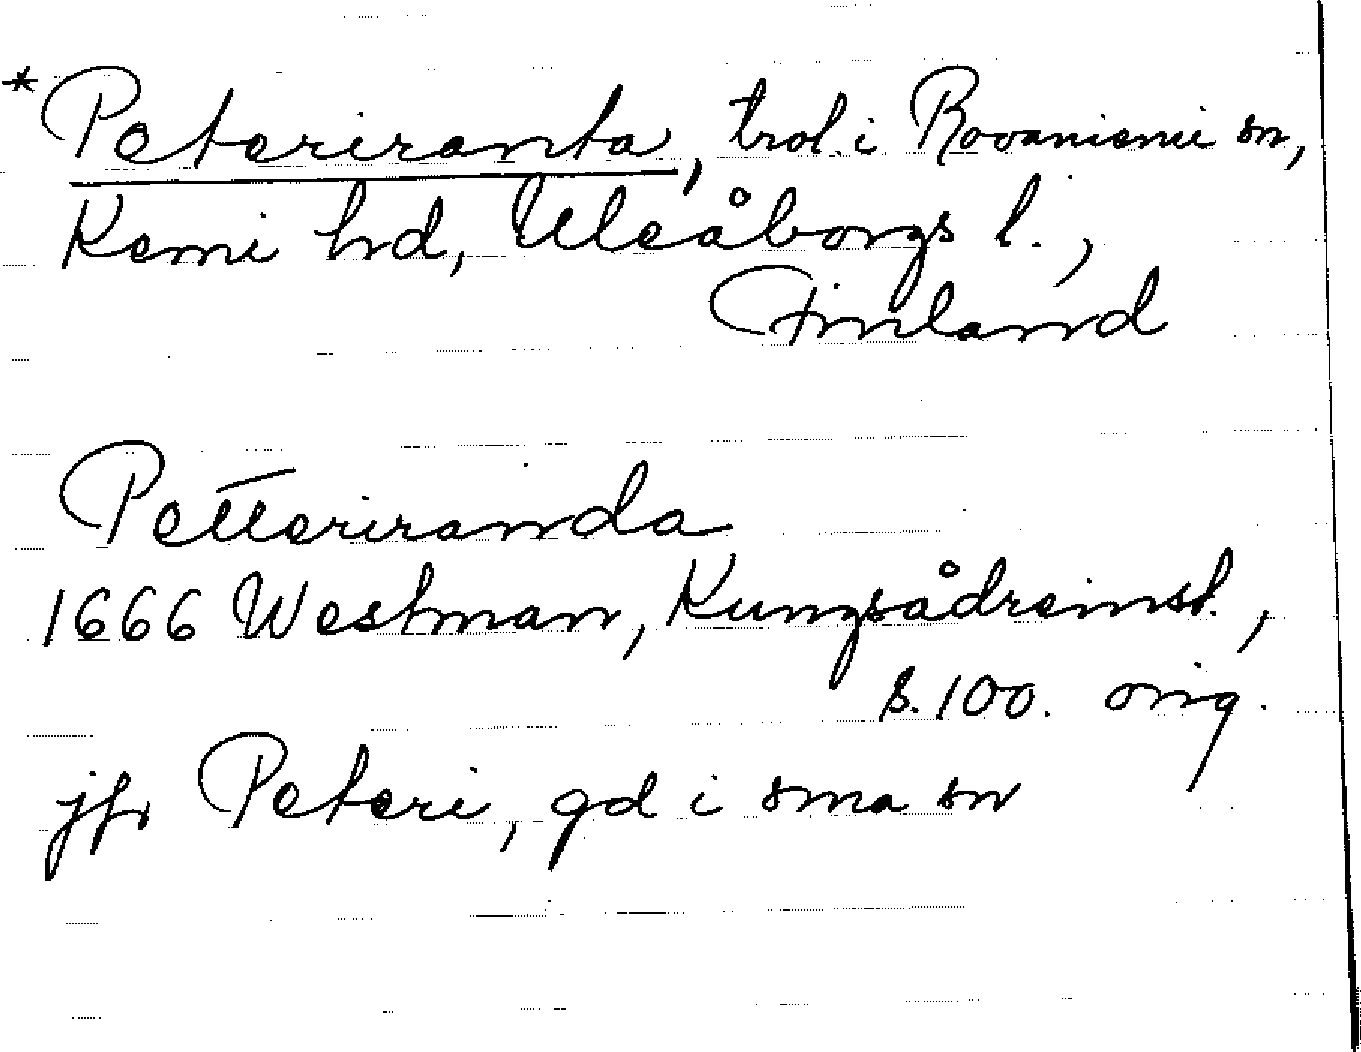 *Peteriranta, trol. i Rovaniemi sn,
Kemi hd, Uleåborgs l.,
Finland
Petteriranda
1666 Westman, Kungsådreinst.,
s. 100. orig.
jfr Peteri, gd i sma sn